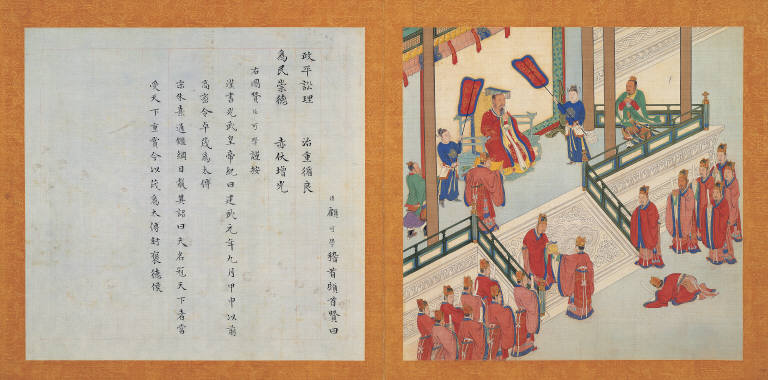 臣顧可學稽首頓首贊曰
政平訟理 治重循良
為民崇德 赤伏增光
右圖贊臣可學謹按
漢書光武皇帝紀曰建武元年九月甲申以前
高密令卓茂為太傅
宋朱熹通鑑綱目載其詔曰夫名冠天下者當
受天下重賞今以茂為太傅封褒德侯